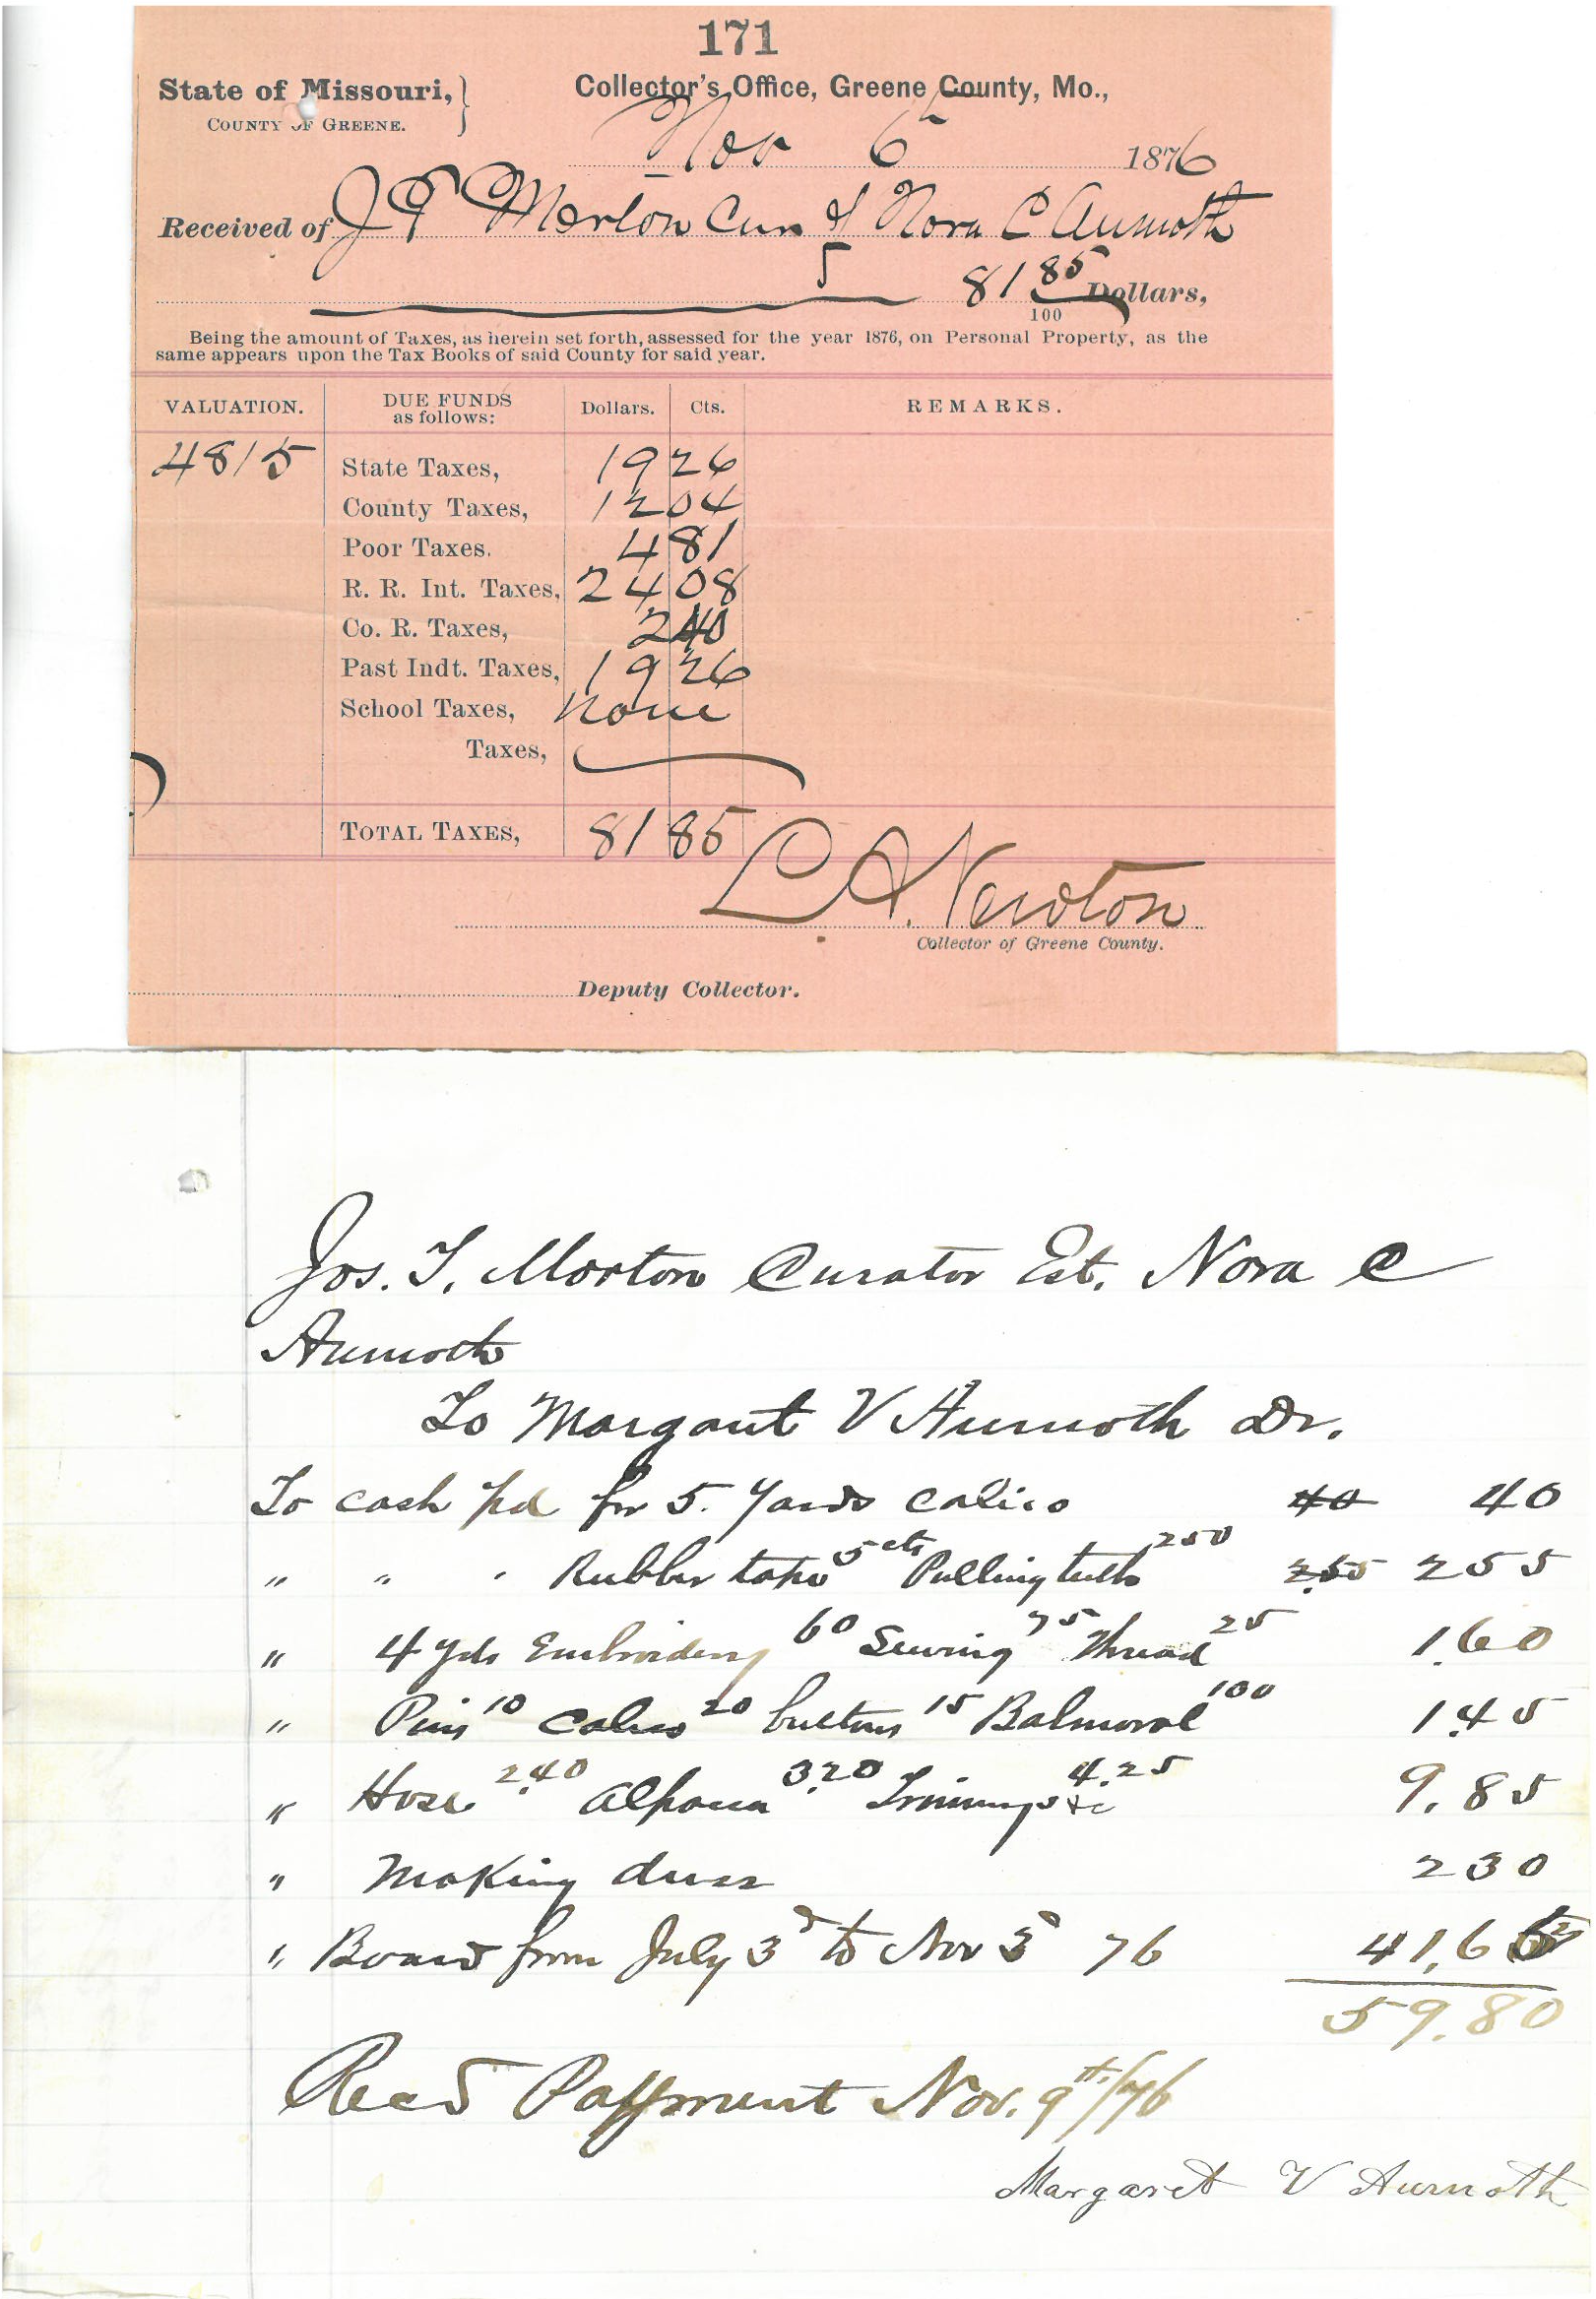 171
State of Missouri, } Collector's Office, Greene County, Mo.,
COUNTY OF GREENE.
Nov 6th 1876
Received of J T Morton Cur of Nora C Aumoth
81 85/100 Dollars,
Being the amount of Taxes, as herein set forth, assessed for the year 1876, on Personal Property, as the
same appears upon the Tax Books of said County for said year.
VALUATION. DUE FUNDS as follows: Dollars. Cts. REMARKS.
4815 State Taxes, 19 26
County Taxes, 12 04
Poor Taxes. 4 81
R. R. Int. Taxes, 24 08
Co. R. Taxes, 2 40
Past Indt. Taxes, 19 26
School Taxes, none
Taxes,
TOTAL TAXES, 81 85
L A. Newton
Collector of Greene County.
Deputy Collector.
Jos. T. Morton Curator Est. Nora C
Aumoth
To Margaret V Aumoth Dr.
To cash pd for 5. Yards calico 40 40
" " " Rubber tape 5cts Pulling teeth 250 2.55 2 55
" 4 yds Embroidery 60 Sewing 75 Thread 25 1.60
" Pins 10 Calico 20 buttons 15 Balmoral 100 1.45
" Hose 2.40 Alpaca 3.20 Trimmings &c 4.25 9.85
" Making dress 2 30
" Board from July 3d to Nov 3d 76 41.65
59.80
Recd Payment Nov. 9th/76
Margaret V Aumoth